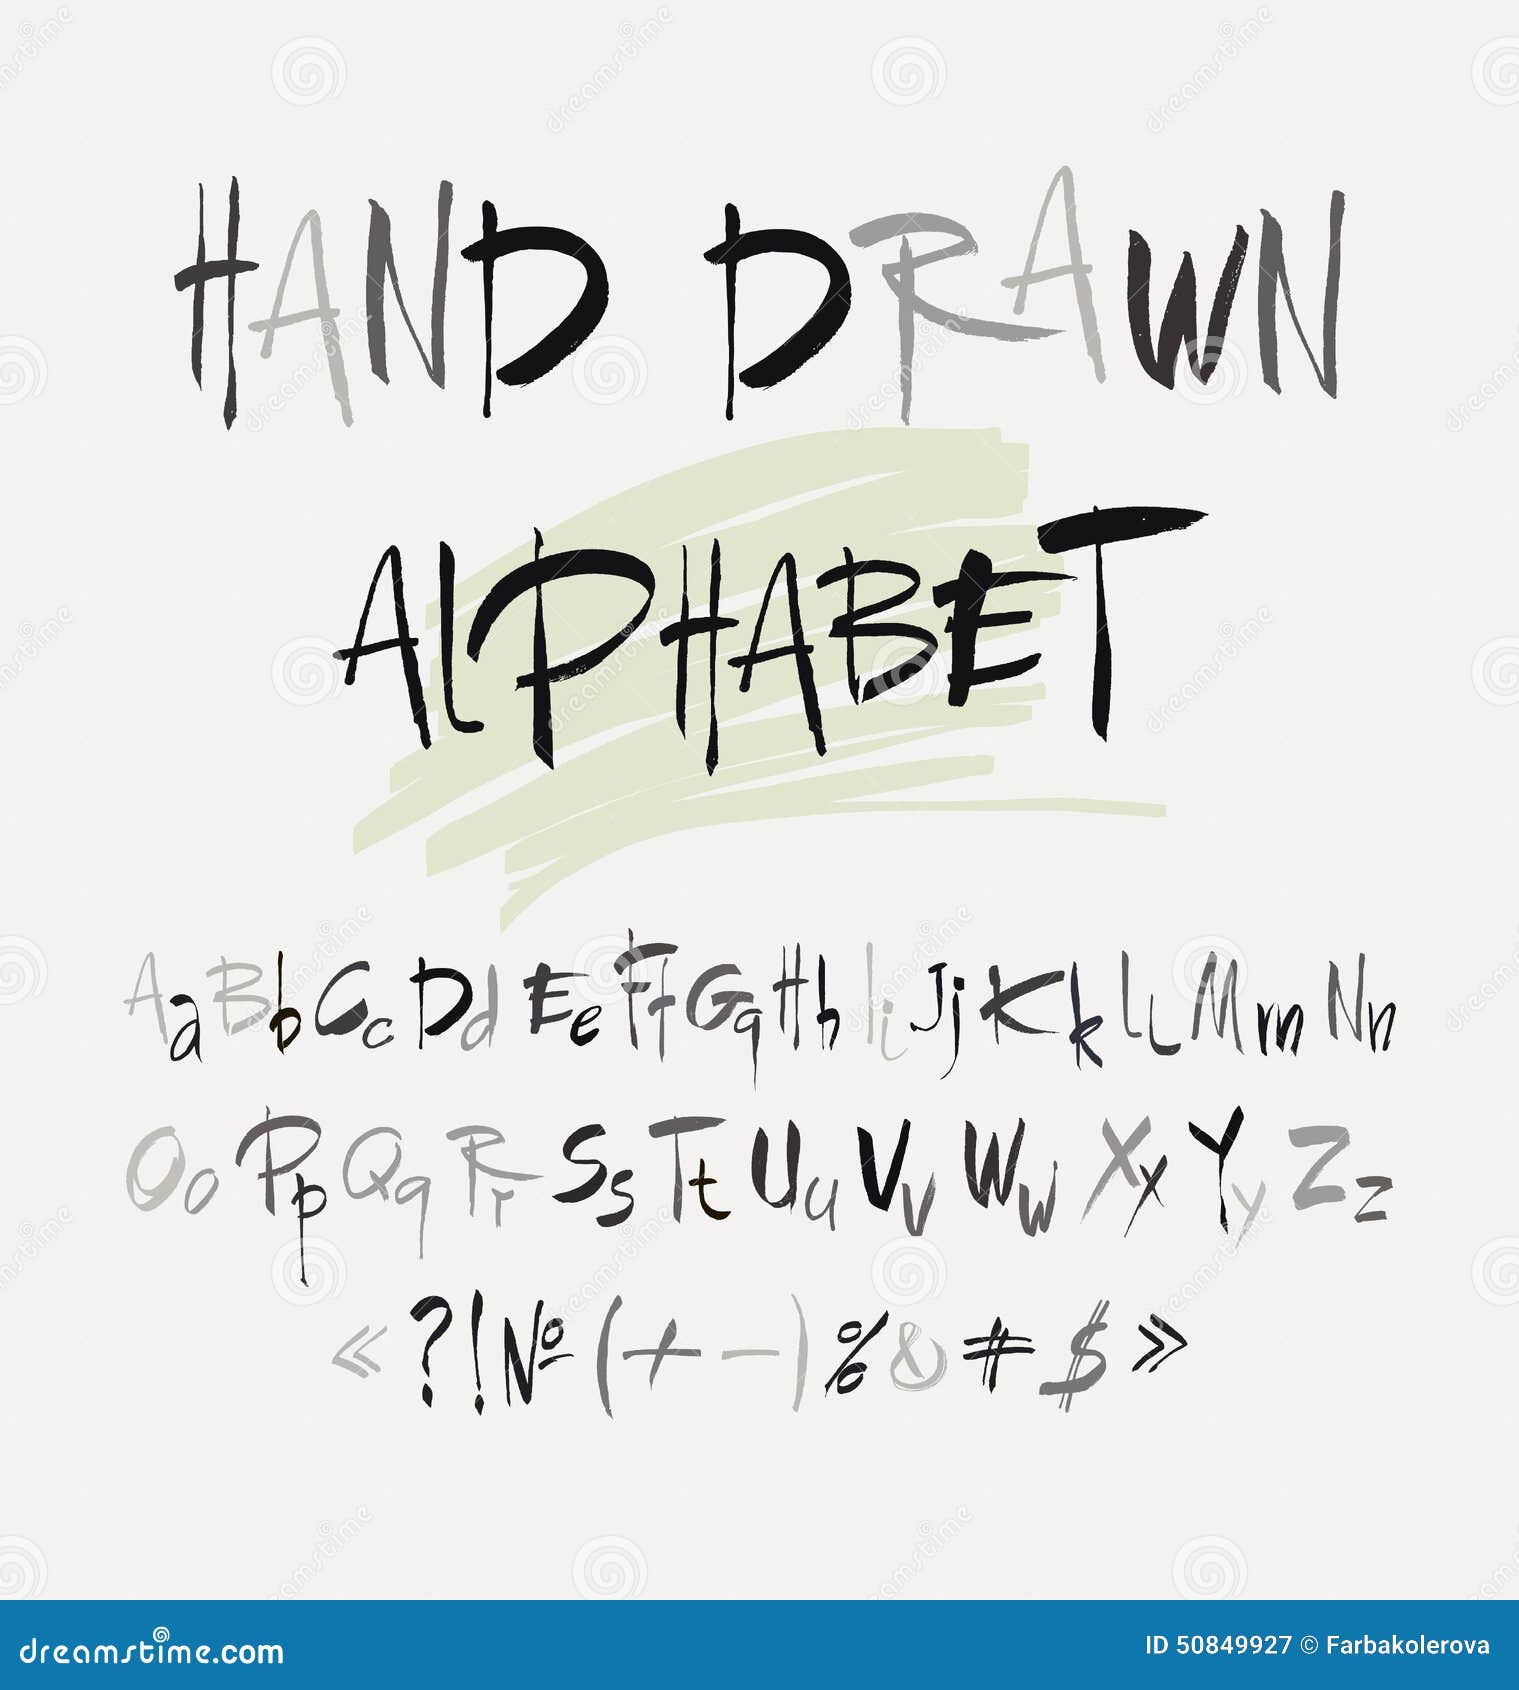 HAND DRAWN
AlPHABET
Aa Bb Cc Dd Ee Ff Gg Hh Ii Jj Kk Ll Mm Nn
Oo Pp Qq Rr Ss Tt Uu Vv Ww Xx Yy Zz
« ? ! № ( + – ) % & # $ »
dreamstime.com
ID 50849927 © Farbakolerova